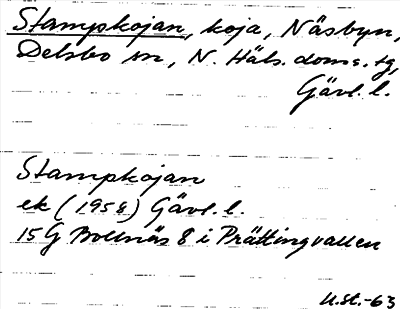 Stampkojan, koja, Näsbyn,
Delsbo sn, N. Häls. doms. tg,
Gävl. l.
Stampkojan
ek (1958) Gävl. l.
15G Bollnäs 8 i Prättingvallen
U.st.-63